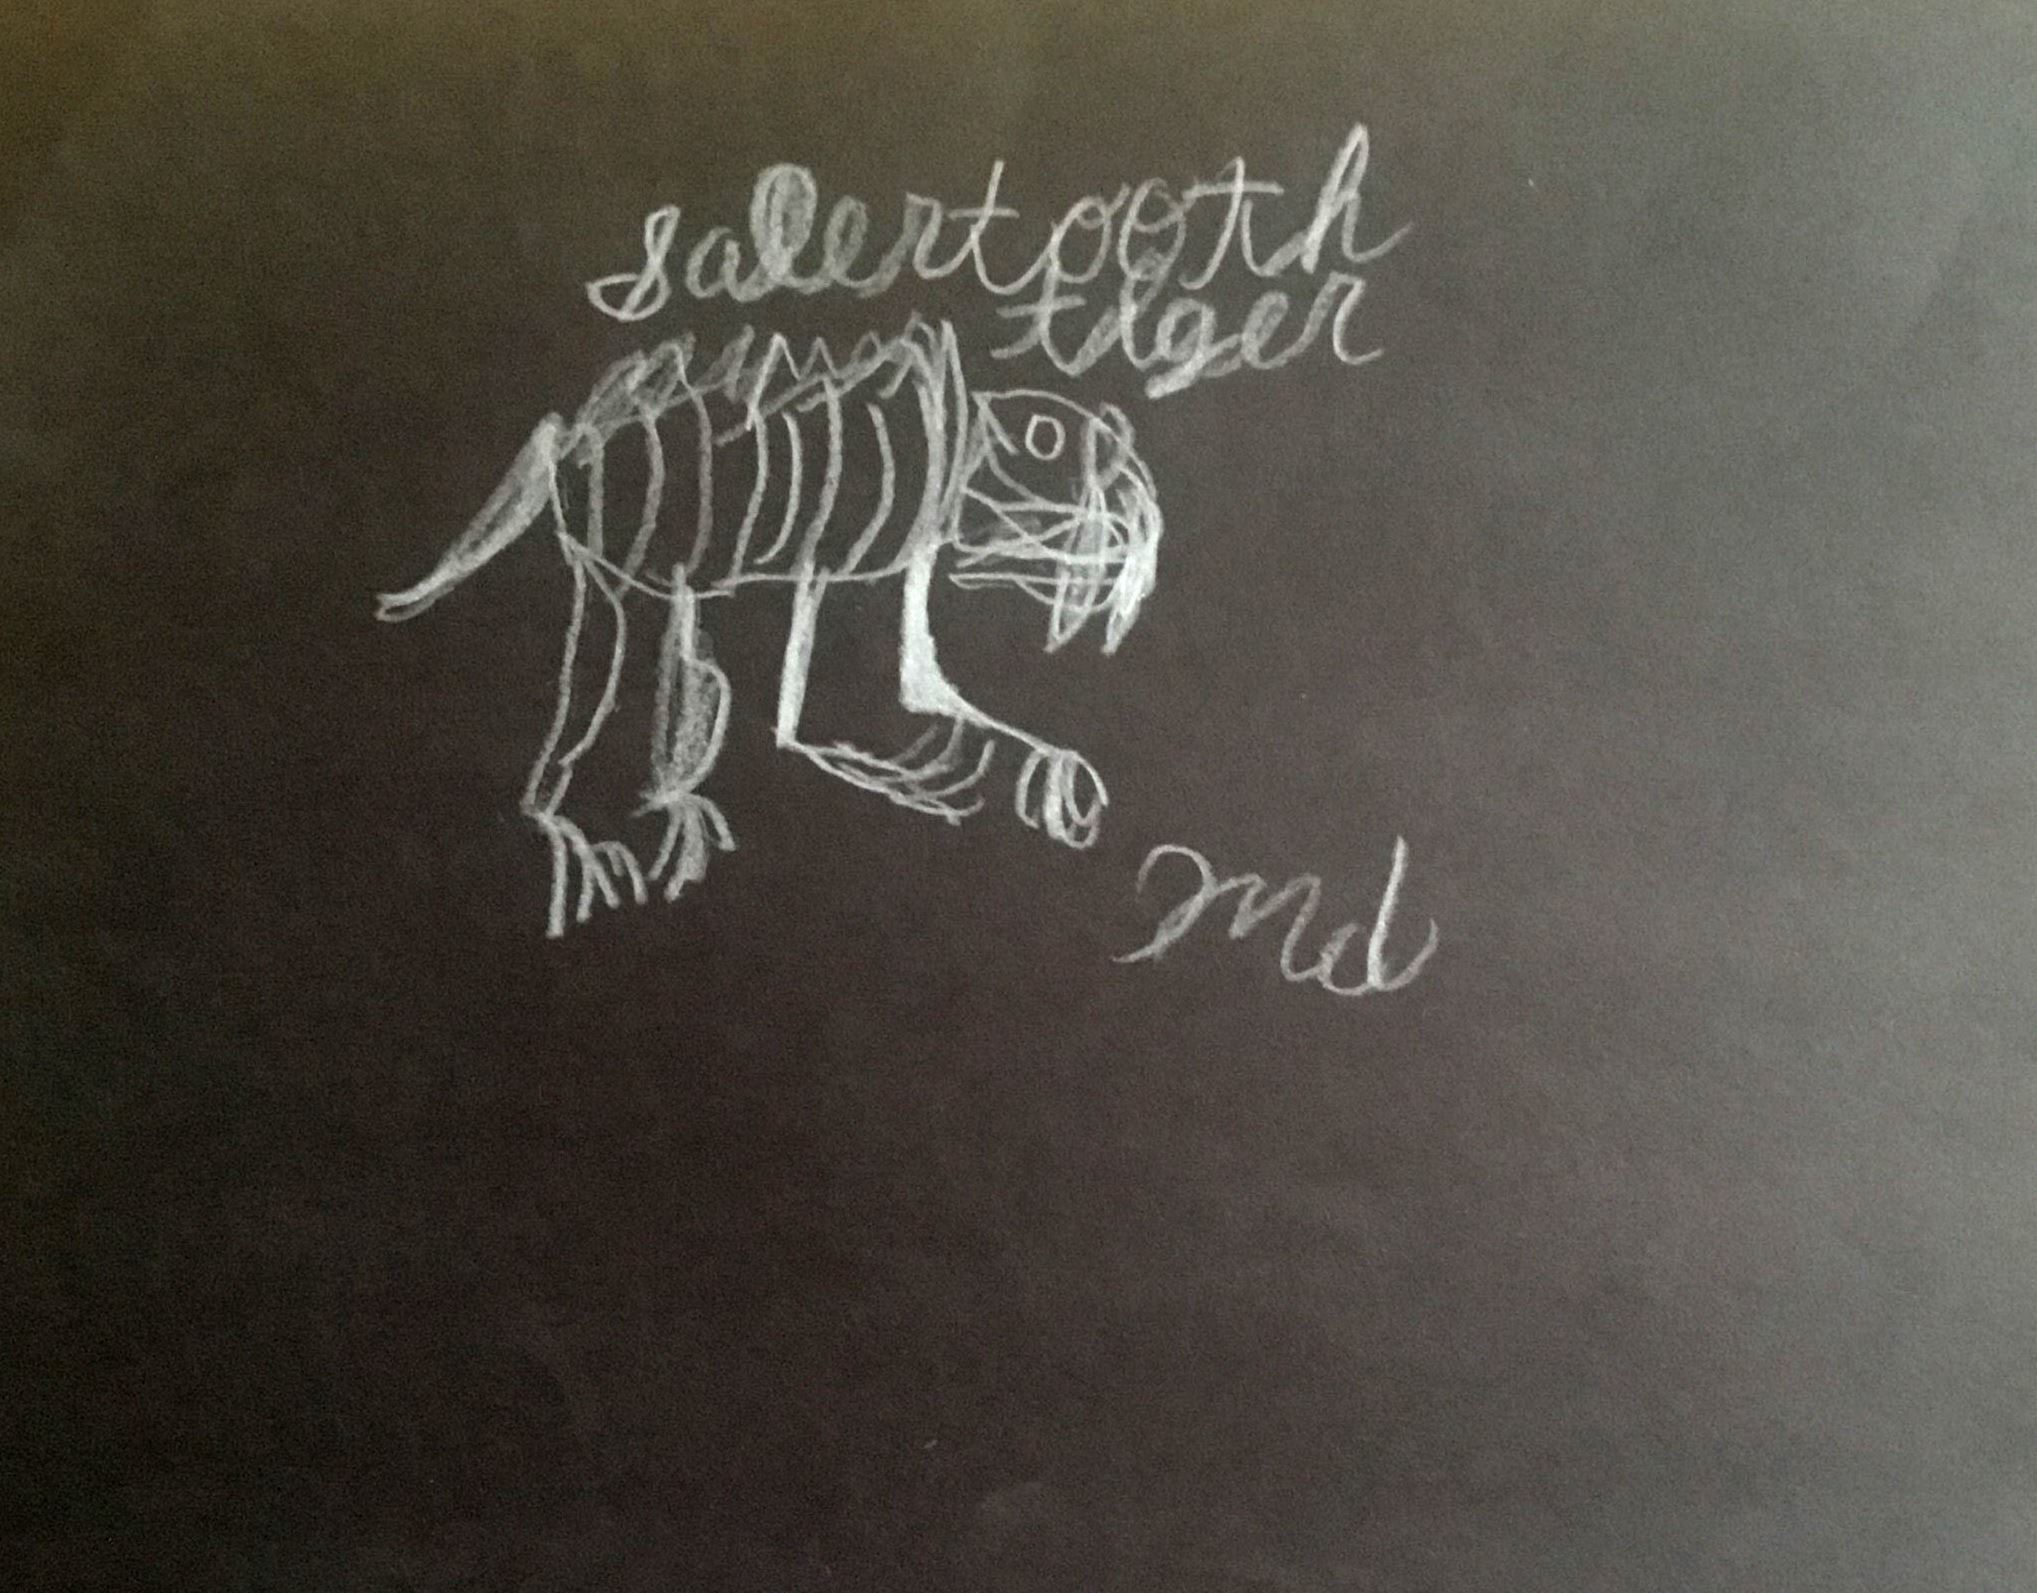 sabertooth
tiger
md